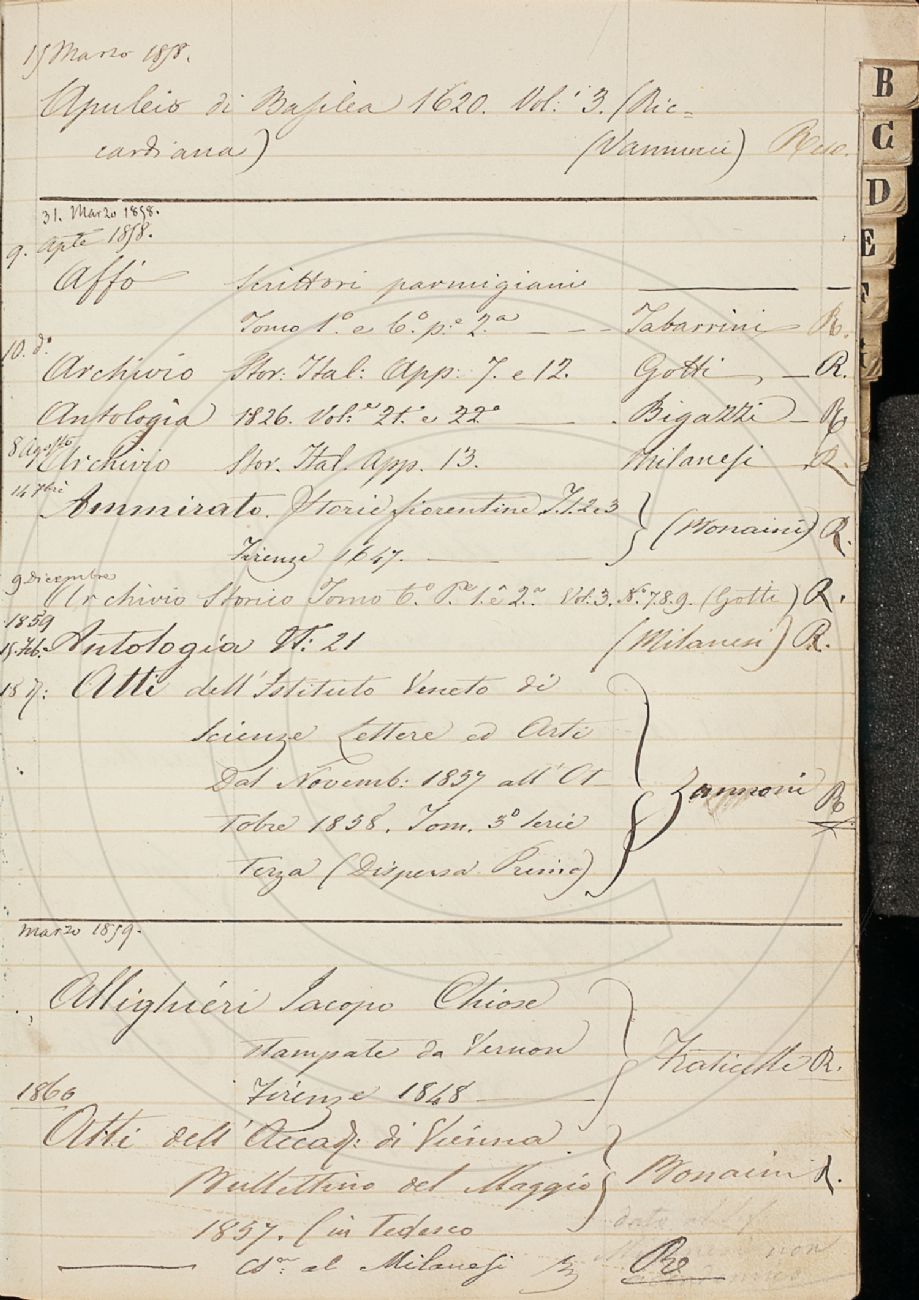 15 Marzo 1858.
Apuleio di Basilea 1620. Vol: 3. (Ric=
cardiana) (Vannucci)
31. Marzo 1858.
9. Aple 1858.
Affò Scrittori parmigiani
Tomo 1º e 6º p.e 2a Tabarrini R.
10. dº
Archivio Stor: Ital: App: 7. e 12. Gotti R.
Antologia 1826. Vol: 21º e 22º Bigazzi R
8 Agosto
Archivio Stor. Ital. App. 13. Milanesi R.
14 7bre
Ammirato. Storie fiorentine T. 1. 2 e 3
Firenze 1647. (Bonaini) R.
9 Dicembre
Archivio Storico Tomo 6º P.e 1a e 2a Vol. 3. Nº 7.8.9. (Gotti) R.
1859
15. Feb. Antologia Vº: 21 (Milanesi) R.
18 Atti dell'Istituto Veneto di
Scienze Lettere ed Arti
Dal Novemb: 1857 all'Ot
tobre 1858. Tom. 3º Serie
Terza (Dispensa Prima) Zannoni R
Marzo 1859.
Allighieri Jacopo Chiose
stampate da Vernon Fraticelli R.
Firenze 1848
1860
Atti dell'Accad: di Vienna
Bullettino del Maggio Bonaini R.
1857. (in Tedesco
al Milanesi
non
B
C
D
E
F